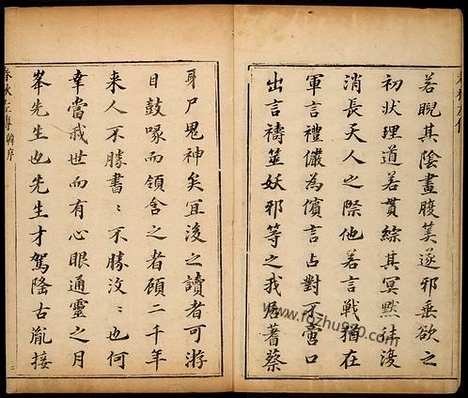 若睨其陰畫腹羙遂邪垂欲之
初状理道若貫綜其冥黙
消長天人之際他若言戰猶在
軍言禮儼為儐言占對不啻口
出言禱筮妖邪等之我居蓍蔡
身尸鬼神矣宜後之讀者可游
目鼓喙而頷含之者顧二千年
来人不勝書〻不勝汶〻也何
幸當我世而有心眼通靈之月
峯先生也先生才駕隆古胤接
春秋左傳